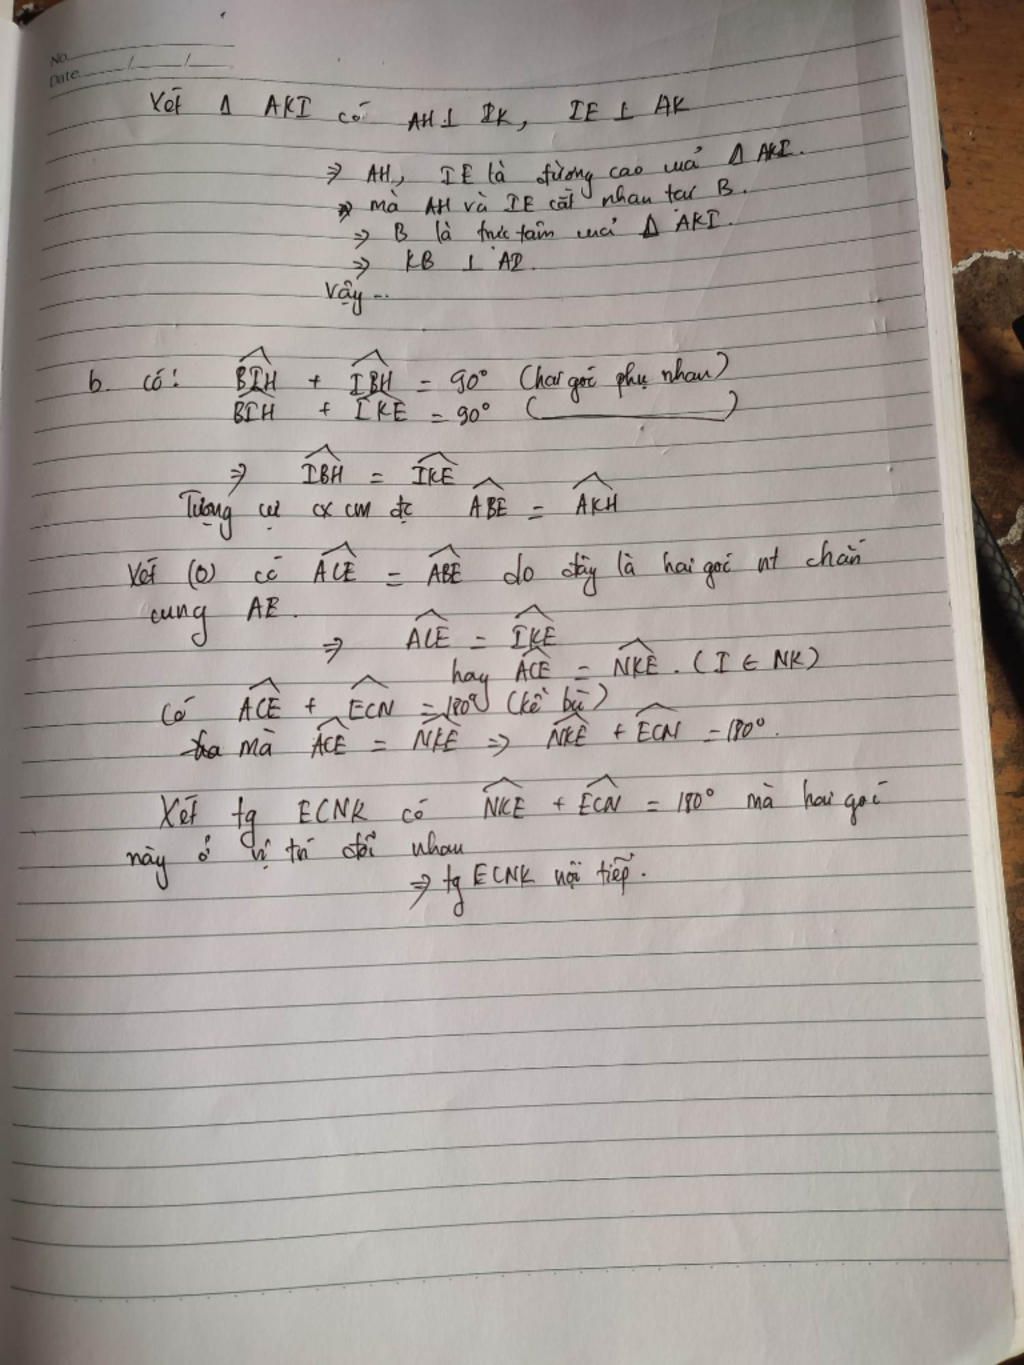 No.
Date / /
Xét Δ AKI có AH ⊥ IK, IE ⊥ AK
=> AH, IE là đường cao của Δ AKI.
=> mà AH và IE cắt nhau tại B.
=> B là trực tâm của Δ AKI.
=> KB ⊥ AI.
Vậy...
b. có: \widehat{BIH} + \widehat{IBH} = 90° (hai góc phụ nhau)
\widehat{BIH} + \widehat{IKE} = 90° (________)
=> \widehat{IBH} = \widehat{IKE}
Tương tự cx cm đc \widehat{ABE} = \widehat{AKH}
Xét (O) có \widehat{ACE} = \widehat{ABE} do đây là hai góc nt chắn
cung AE.
=> \widehat{ACE} = \widehat{IKE}
hay \widehat{ACE} = \widehat{NKE}. (I ∈ NK)
Có \widehat{ACE} + \widehat{ECN} = 180° (kề bù)
mà \widehat{ACE} = \widehat{NKE} => \widehat{NKE} + \widehat{ECN} = 180°.
Xét tg ECNK có \widehat{NKE} + \widehat{ECN} = 180° mà hai góc
này ở vị trí đối nhau
=> tg ECNK nội tiếp.